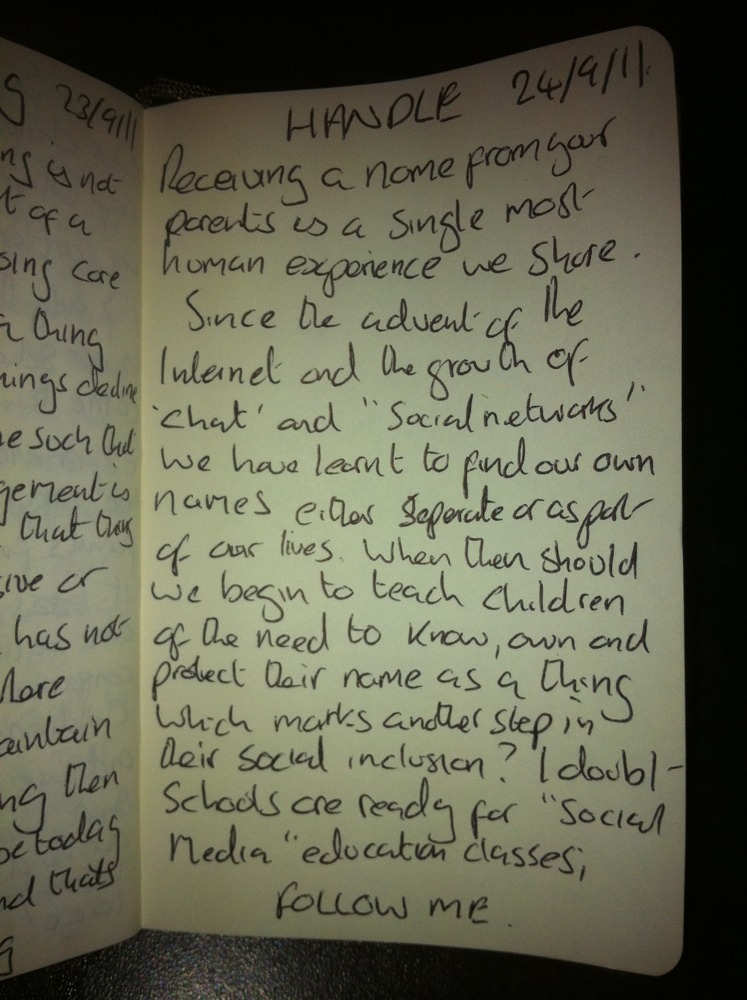 G 23/9/11
ng is not
t of a
sing core
a thing
hings decline
e such that
gement is
that thing
sive or
has not
More
aintain
ng then
be today
nd thats
HANDLE 24/9/11.
Receiving a name from your
parents is a single most
human experience we share.
Since the advent of the
Internet and the growth of
'chat' and "Social networks"
we have learnt to find our own
names either seperate or as part
of our lives. When then should
we begin to teach children
of the need to know, own and
protect their name as a thing
which marks another step in
their social inclusion? I doubt
Schools are ready for "Social
Media" education classes;
FOLLOW ME.